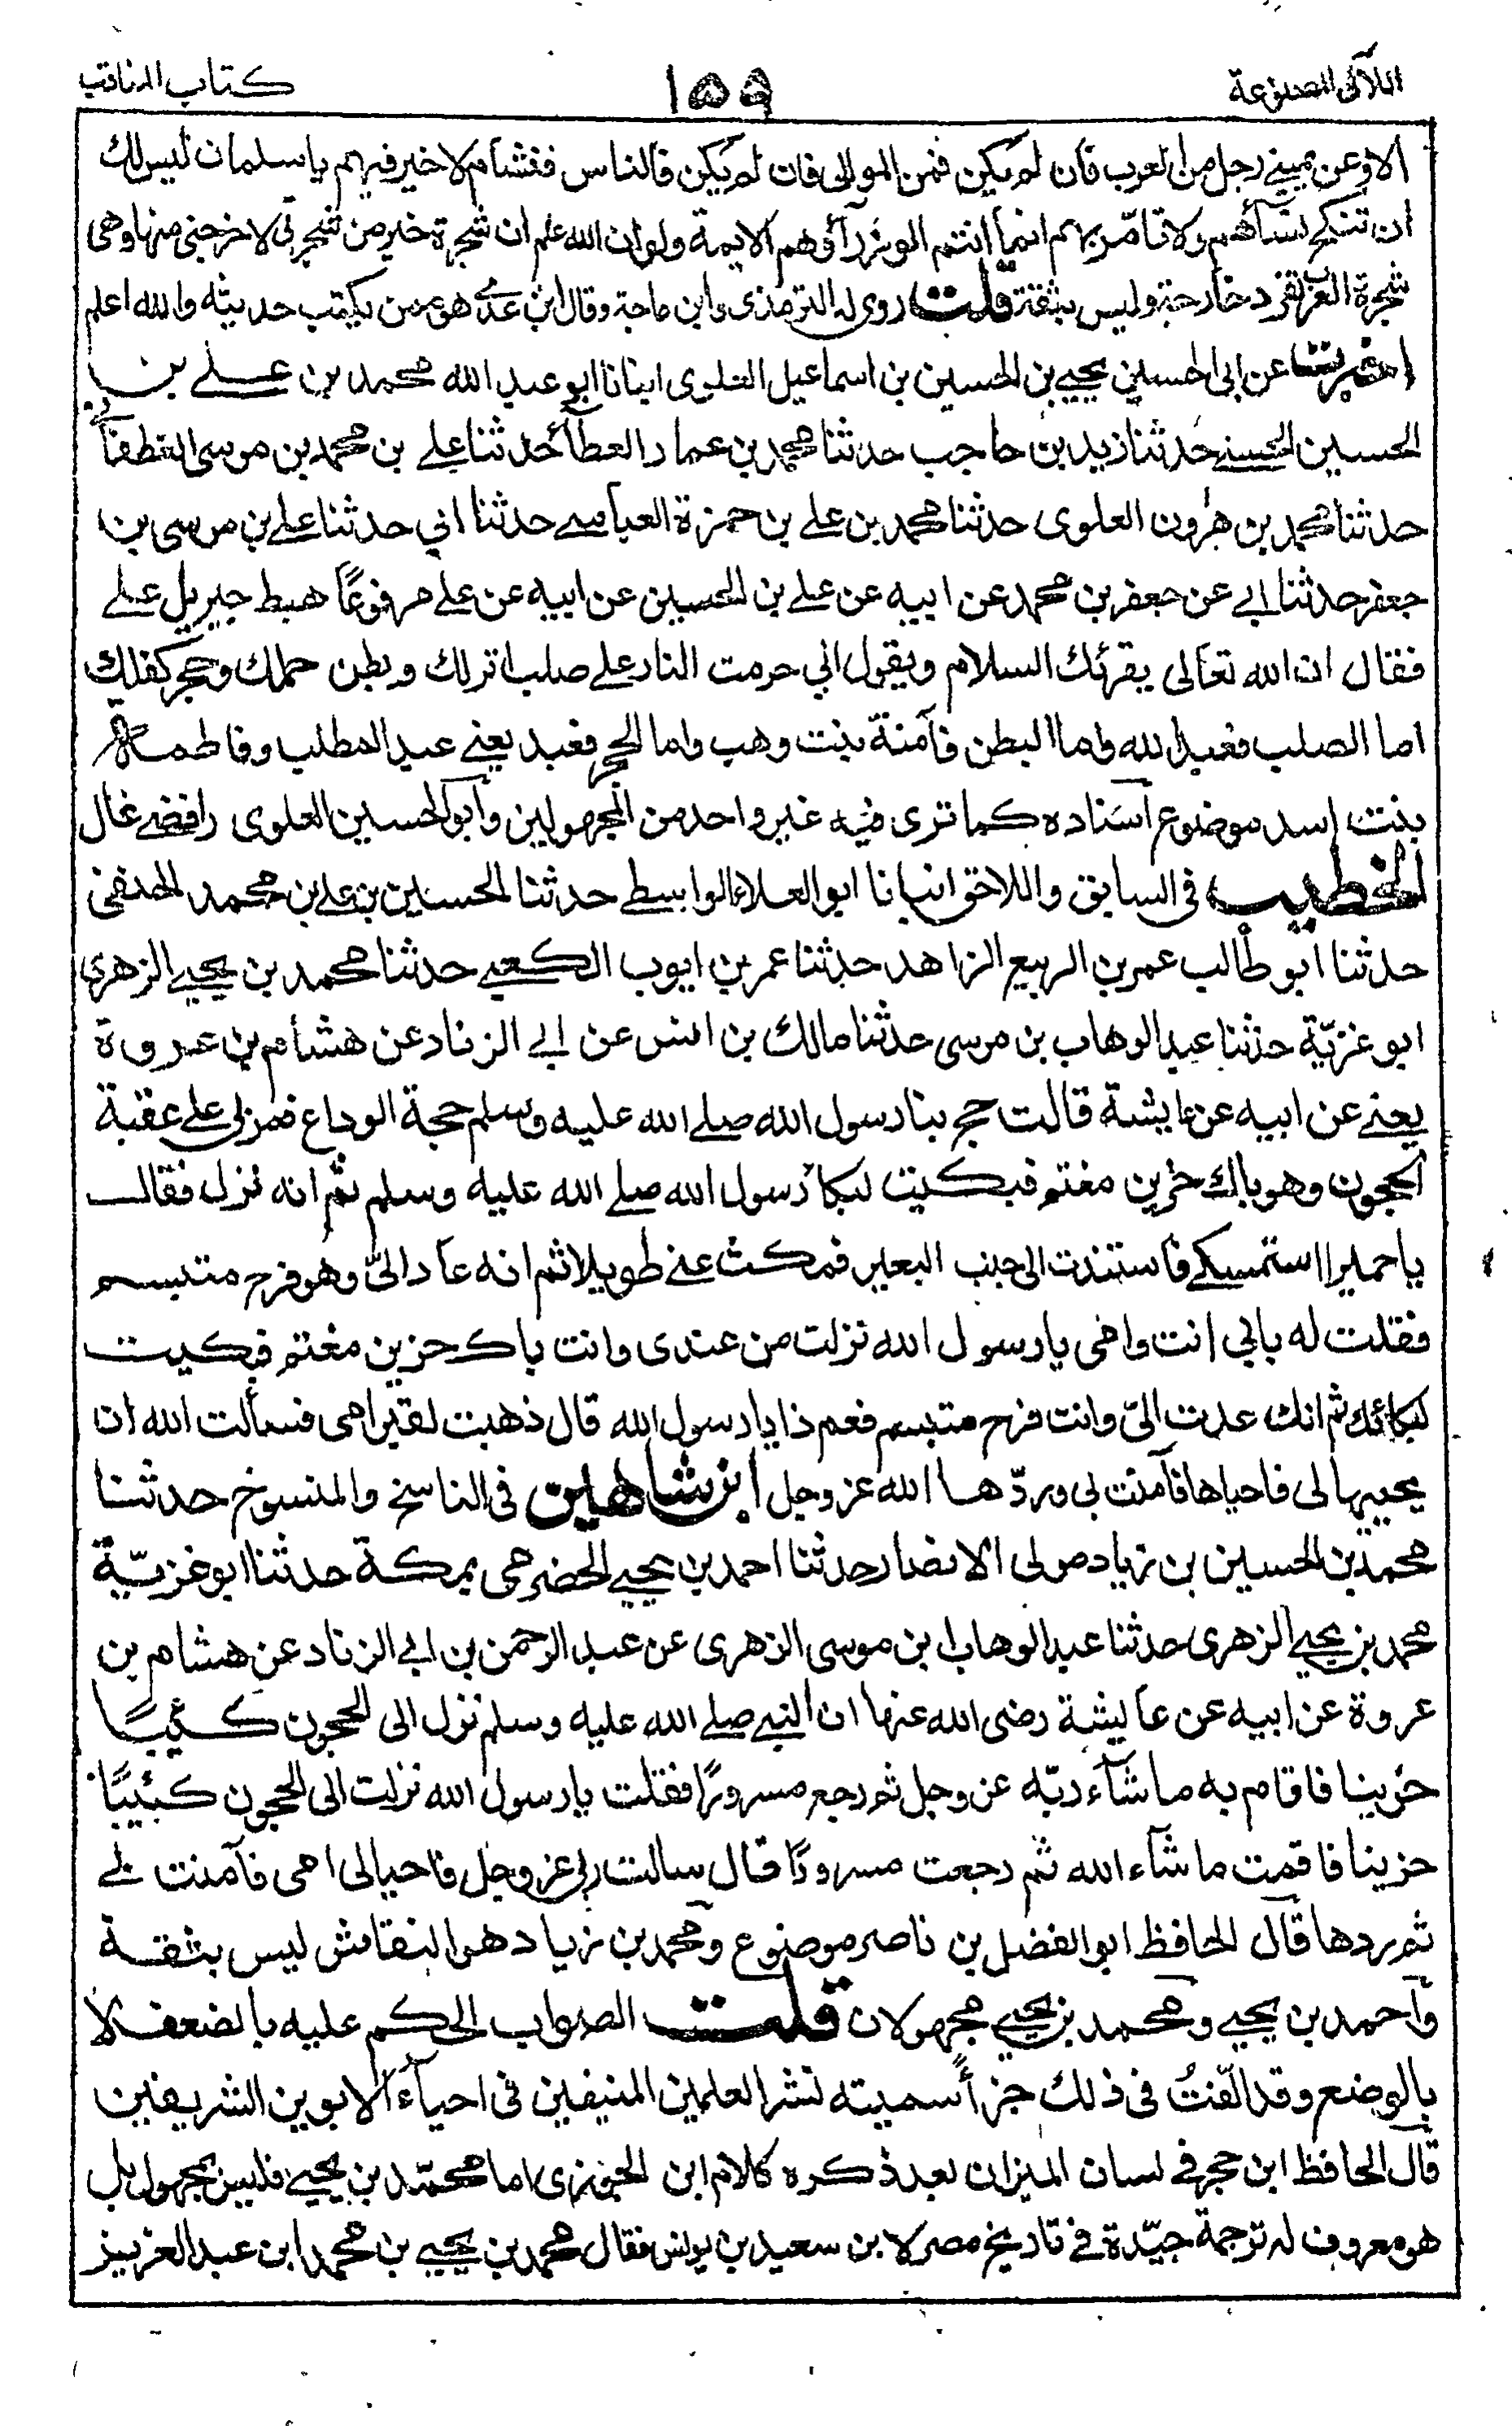 اللآلى المصنوعة ١٥٩ كتاب المناقب
الا وعن يميني رجل من العرب فان لم يكن فمن الموالى فان لم يكن فالناس فئام لا خير فيهم يا سلمان ليس لك
ان تنكح نسآءهم ولا تامّر بهم انما انتم الوزرآء وهم الايمة ولو ان الله علم ان شجرة خير من شجرتى لاخرجنى منها وهى
شجرة العرب تفرد خارجة وليس بثقة قلت روى له الترمذى وابن ماجة وقال ابن عدے هو ممن يكتب حديثه والله اعلم
اخبرت عن ابى الحسين يحيے بن الحسين بن اسماعيل العلوى انبانا ابو عبد الله محمد بن علے بن
الحسين الحسنے حدثنا زيد بن حاجب حدثنا محمد بن عمار العطآر حدثنا علے بن محمد بن موسى الغطفانے
حدثنا محمد بن هٰرون العلوى حدثنا محمد بن علے بن حمزة العباسے حدثنا ابي حدثنا علے بن موسى بن
جعفر حدثنا ابے عن جعفر بن محمد عن ابيه عن علے بن الحسين عن ابيه عن علے مرفوعًا هبط جبريل علے
فقال ان الله تعالى يقرئك السلام ويقول انى حرمت النار علے صلب انزلك وبطن حملك وحجر كفلك
اما الصلب فعبد الله واما البطن فآمنة بنت وهب واما الحجر فعبد يعنے عبد المطلب وفاطمة
بنت اسد موضوع اسناده كما ترى فيه غير واحد من المجهولين وابو الحسين العلوى رافضے غال
الخطيب فى السابق واللاحق انبانا ابو العلاء الواسطے حدثنا الحسين بن علے بن محمد الحنفى
حدثنا ابو طالب عمر بن الربيع الزاهد حدثنا عمر بن ايوب الكعبے حدثنا محمد بن يحيے الزهرى
ابو غزيّة حدثنا عبد الوهاب بن موسى حدثنا مالك بن انس عن ابے الزناد عن هشام بن عروة
يعنے عن ابيه عن عايشة قالت حج بنا رسول الله صلے الله عليه وسلم حجة الوداع فمر بى علے عقبة
الحجون وهو باك حزين مغتم فبكيت لبكاء رسول الله صلے الله عليه وسلم ثم انه نزل فقال
يا حميرا استمسكے فاستندت الى جنب البعير فمكث عنے طويلا ثم انه عاد الىّ وهو فرح متبسم
فقلت له بابى انت وامى يا رسول الله نزلت من عندى وانت باك حزين مغتم فبكيت
لبكائك ثم انك عدت الىّ وانت فرح متبسم فعم ذا يا رسول الله قال ذهبت لقبر امى فسألت الله ان
يحييها لى فاحياها فآمنت بى وردّها الله عز وجل ابن شاهين فى الناسخ والمنسوخ حدثنا
محمد بن الحسين بن زياد مولى الانصار حدثنا احمد بن يحيے الحضرمى بمكة حدثنا ابو غزيّة
محمد بن يحيے الزهرى حدثنا عبد الوهاب ابن موسى الزهرى عن عبد الرحمن بن ابے الزناد عن هشام بن
عروة عن ابيه عن عايشة رضى الله عنها ان النبے صلے الله عليه وسلم نزل الى الحجون كئيبًا
حزينا فاقام به ما شآء ربّه عز وجل ثم رجع مسرورًا فقلت يا رسول الله نزلت الى الحجون كئيبًا
حزينا فاقمت ما شآء الله ثم رجعت مسرورًا قال سالت ربى عز وجل فاحيا لى امى فآمنت بے
ثم ردها قال الحافظ ابو الفضل بن ناصر موضوع ومحمد بن زياد هو النقاش ليس بثقة
واحمد بن يحيے ومحمد بن يحيے مجهولان قلت الصواب الحكم عليه بالضعف لا
بالوضع وقد الّفتُ فى ذلك جزأً سميته نشر العلمين المنيفين فى احيآء الابوين الشريفين
قال الحافظ ابن حجر فے لسان الميزان بعد ذكره كلام ابن الجوزى اما محمّد بن يحيے فليس بمجهول بل
هو معروف له ترجمة جيّدة فے تاريخ مصر لابن سعيد بن يونس فقال محمد بن يحيے بن محمد ابن عبد العزيز